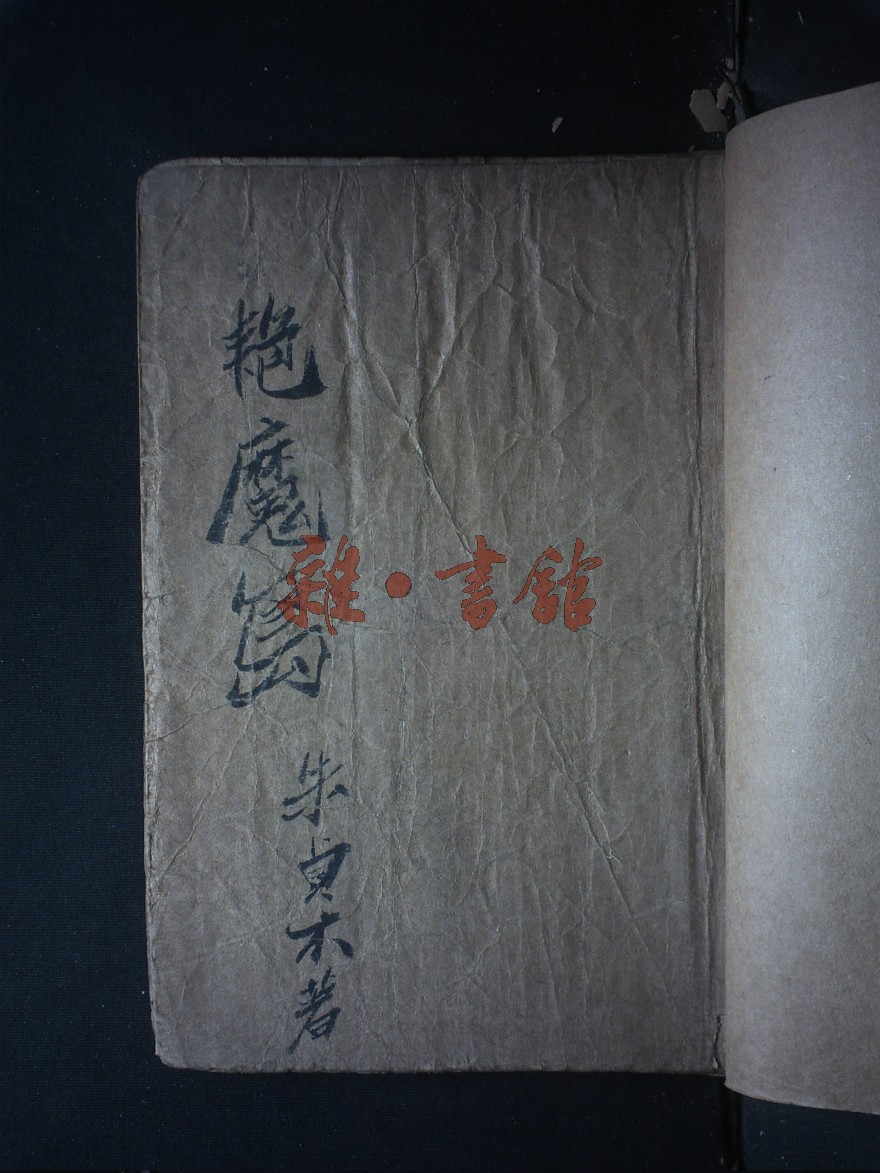 艳魔島
朱貞木著
雜·書館